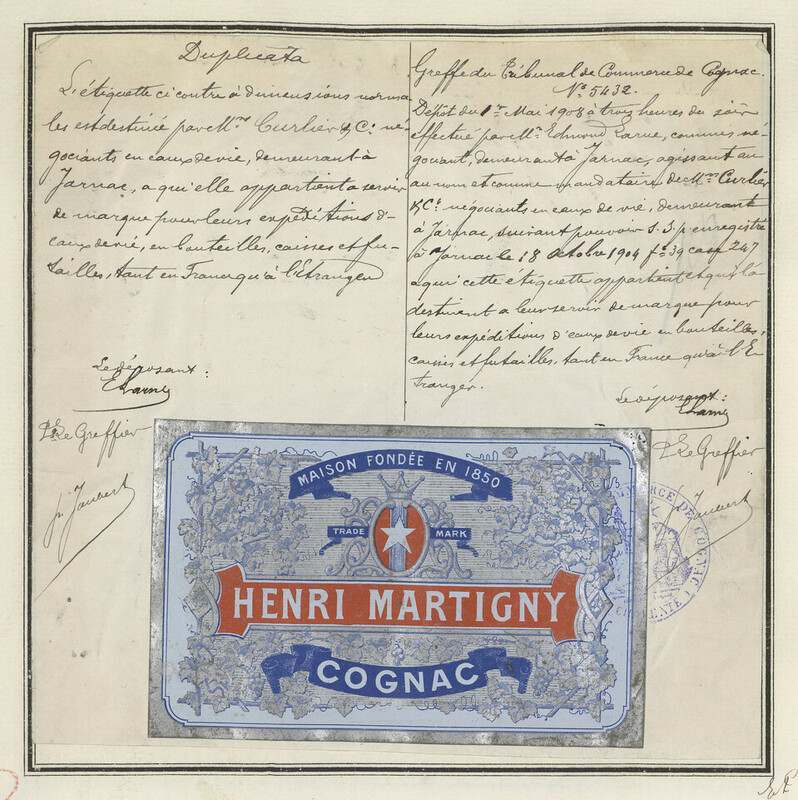 Duplicata
L'étiquette ci contre à dimensions norma
les est destinée par Mrs Curlier & Co né-
gociants en eaux de vie, demeurant à
Jarnac, a qui elle appartient a servir
de marque pour leurs expéditions d'-
eaux de vie, en bouteilles, caisses et fu-
tailles, tant en France qu'à l'Etranger
Le déposant :
ELarue
Pr Le Greffier
Greffe du Tribunal de Commerce de Cognac.
No 5432.
Dépôt du 1er Mai 1908 à trois heures du soir
effectué par Mr Edmond Larue, commis né-
gociant, demeurant à Jarnac, agissant au
au nom et comme mandataire de Mrs Curlier
& Co négociants en eaux de vie, demeurant
à Jarnac, suivant pouvoir s. s. p. enregistré
à Jarnac le 18 Octobre 1904 fo 39 case 247
a qui cette etiquette appartient et qui la
destinent a leur servir de marque pour
leurs expéditions d'eaux de vie en bouteilles,
caisses et futailles, tant en France qu'à l'E
tranger.
Le déposant :
ELarue
Pr Le Greffier
MAISON FONDÉE EN 1850
TRADE MARK
HENRI MARTIGNY
COGNAC